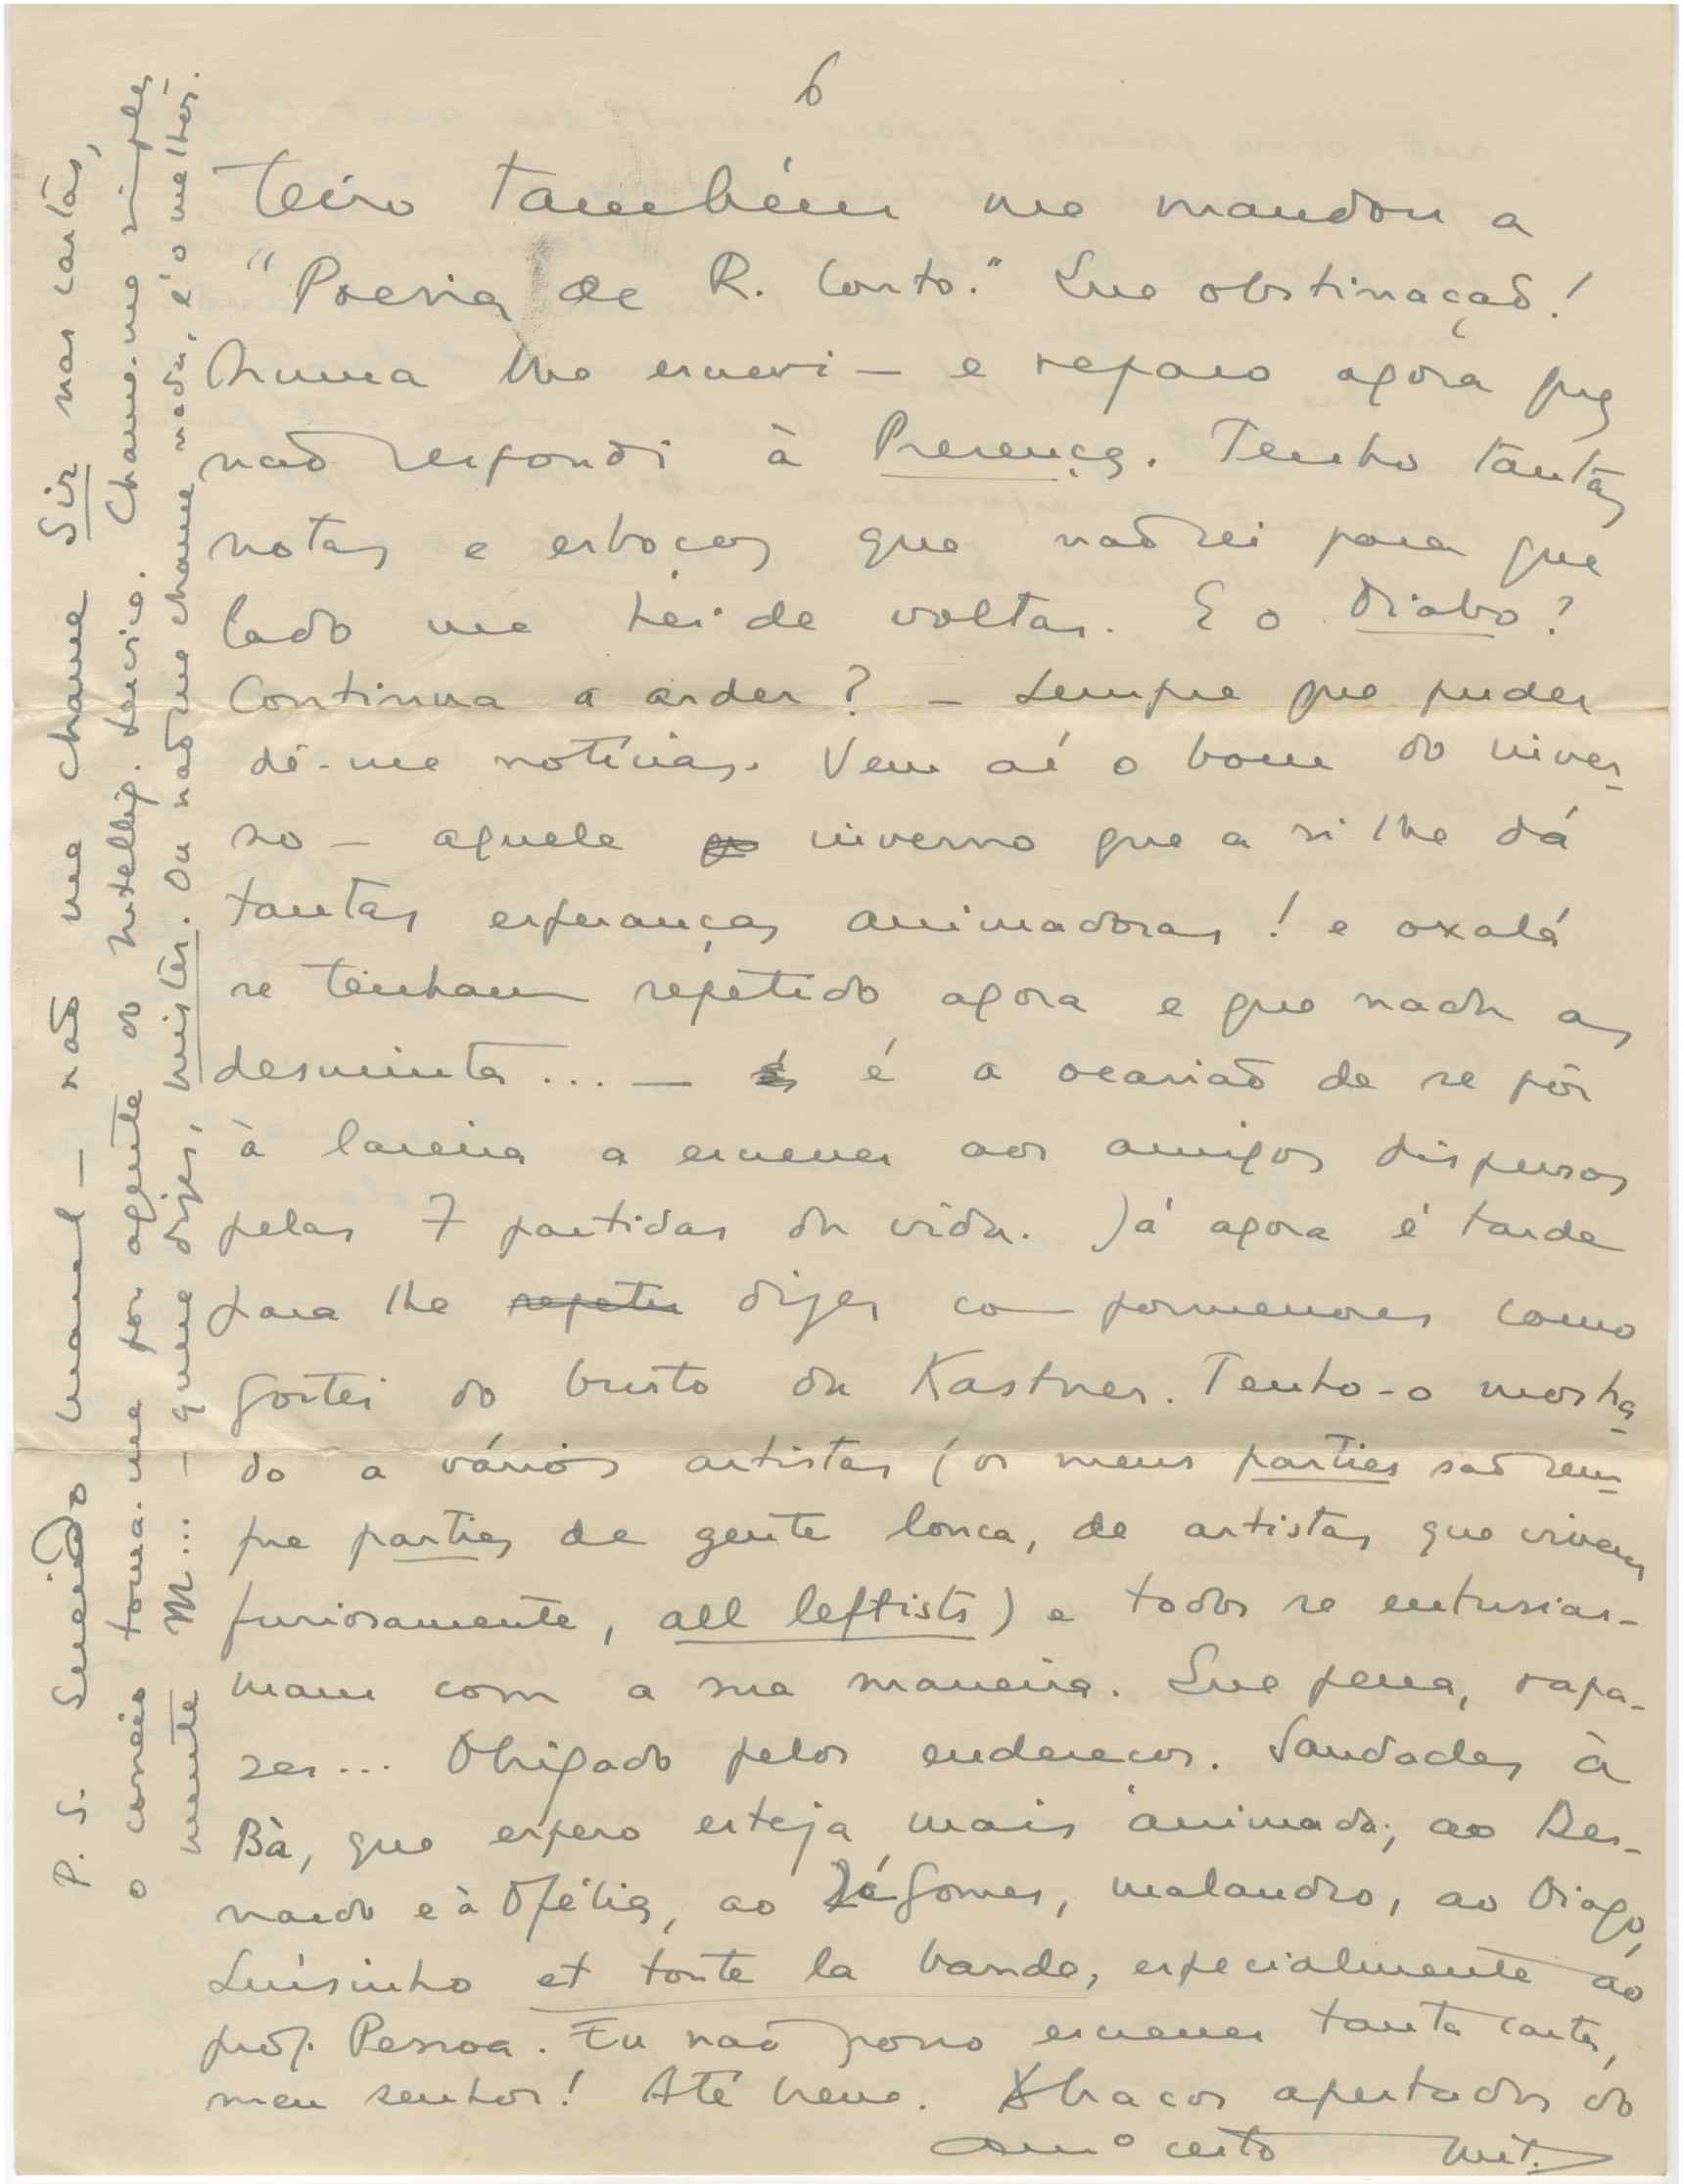 6
teiro também me mandou a
"Poesia de R. Couto." Que obstinação!
Nunca lhe escrevi — e reparo agora que
não respondi à Presença. Tenho tantas
notas e esboços que não sei para que
lado me hei-de voltar. E o Diabo?
Continua a arder? — Sempre que puder
dê-me notícias. Vem aí o bom do inver-
no — aquele inverno que a si lhe dá
tantas esperanças animadoras! e oxalá
se tenham repetido agora e que nada as
desminta... — é a ocasião de se pôr
à lareira a escrever aos amigos dispersos
pelas 7 partidas da vida. Já agora é tarde
para lhe repetir dizer com pormenores como
gostei do busto da Kastner. Tenho-o mostra-
do a vários artistas (os meus parties são sem-
pre parties de gente louca, de artistas que vivem
furiosamente, all leftists) e todos se entusias-
mam com a sua maneira. Que pena, rapa-
zes... Obrigado pelos endereços. Saudades à
Bà, que espero esteja mais animada; ao Ber-
nardo e à Ofélia, ao Zé Gomes, malandro, ao Diogo,
Luisinho et toute la bande, especialmente ao
prof. Pessoa. Eu não posso escrever tanta carta,
meu senhor! Até breve. Abraços apertados do
amº certo Mit.
P. S. Querido Manuel — não me chame Sir nas cartas,
o correio toma-me por agente do Intellig. Service. Chame-me simples
mente M... — quero dizer, mister. Ou não me chame nada, é o melhor.